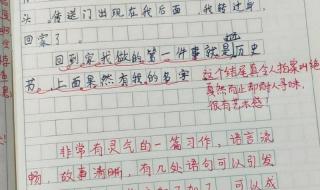 头，传送门出现在我后面，我转过身，
回家了。
回到家我做的第一件事就是看历史
书，上面果然有我的名字
这个结尾真令人拍案叫绝
戛然而止却耐人寻味，
很有艺术感！
非常有灵气的一篇习作，语言流
畅，故事清晰，有几处语句可以引发